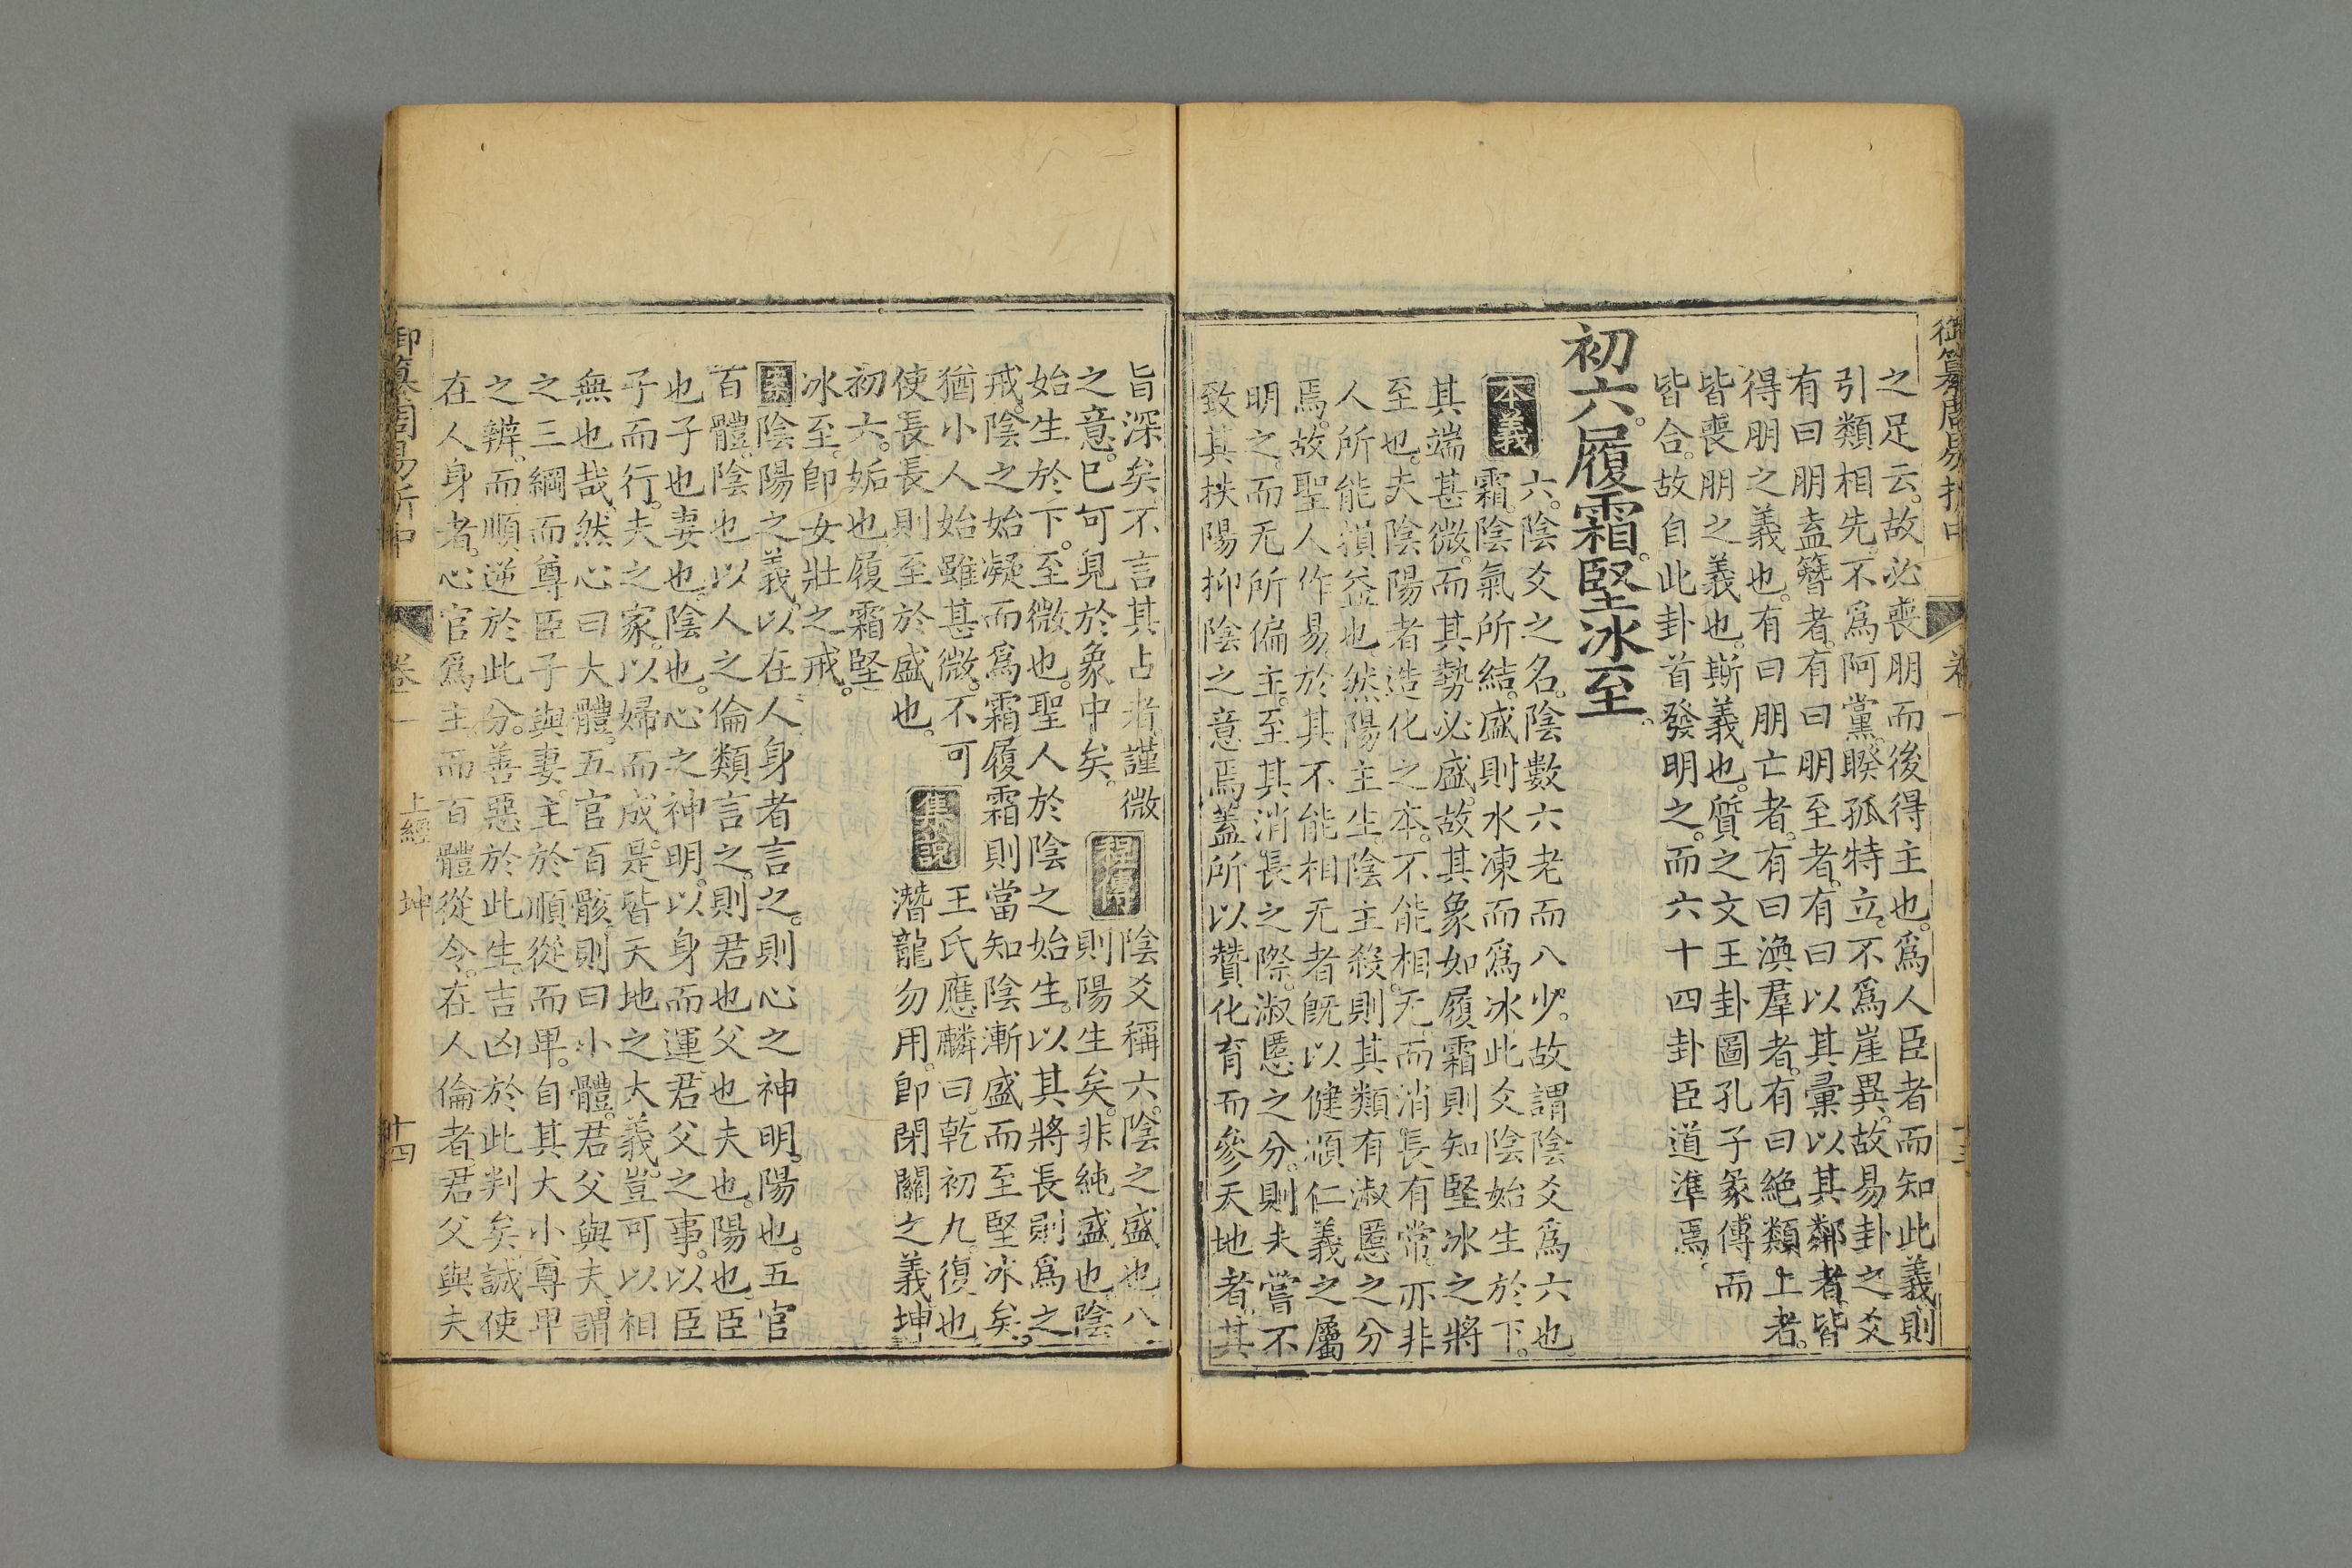 御纂周易折中
卷一
十三
之足云。故必喪朋而後得主也。爲人臣者而知此義則
引類相先。不爲阿黨。睽孤特立。不爲崖異。故易卦之爻
有曰朋盍簪者。有曰朋至者。有曰以其彙以其鄰者。皆
得朋之義也。有曰朋亡者。有曰渙羣者。有曰絶類上者。
皆喪朋之義也。斯義也。質之文王卦圖孔子彖傳而
皆合。故自此卦首發明之。而六十四卦臣道準焉。
初六。履霜。堅冰至。
本義
六。陰爻之名。陰數六老而八少。故謂陰爻爲六也。
霜。陰氣所結。盛則水凍而爲冰。此爻陰始生於下。
其端甚微。而其勢必盛。故其象如履霜則知堅冰之將
至也。夫陰陽者造化之本。不能相无。而消長有常。亦非
人所能損益也。然陽主生。陰主殺。則其類有淑慝之分
焉。故聖人作易。於其不能相无者。旣以健順仁義之屬
明之。而无所偏主。至其消長之際。淑慝之分。則未嘗不
致其扶陽抑陰之意焉。蓋所以贊化育而參天地者。其
旨深矣。不言其占者。謹微
之意。已可見於象中矣。
程傳
陰爻稱六。陰之盛也。八
則陽生矣。非純盛也。陰
始生於下。至微也。聖人於陰之始生。以其將長。則爲之
戒。陰之始凝而爲霜。履霜則當知陰漸盛而至堅冰矣。
猶小人始雖甚微。不可
使長。長則至於盛也。
集說
王氏應麟曰。乾初九。復也。
潛龍勿用。即閉關之義。坤
初六。姤也。履霜堅
冰至。即女壯之戒。
案
陰陽之義。以在人身者言之。則心之神明。陽也。五官
百體。陰也。以人之倫類言之。則君也父也夫也。陽也。臣
也子也妻也。陰也。心之神明。以身而運。君父之事。以臣
子而行。夫之家。以婦而成。是皆天地之大義。豈可以相
無也哉。然心曰大體。五官百骸。則曰小體。君父與夫。謂
之三綱而尊。臣子與妻。主於順從而卑。自其大小尊卑
之辨。而順逆於此分。善惡於此生。吉凶於此判矣。誠使
在人身者。心官爲主。而百體從令。在人倫者。君父與夫
御纂周易折中
卷一
上經
坤
十四